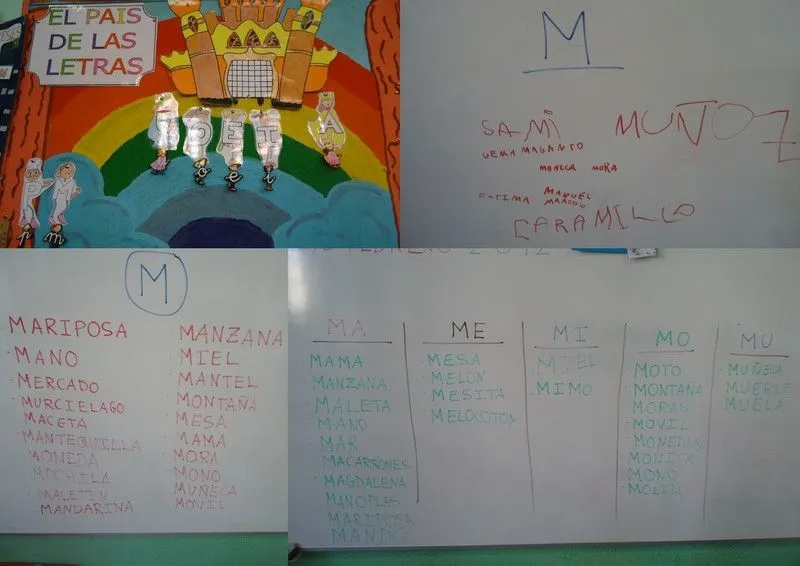 EL PAIS
DE LAS
LETRAS
P M
p m
o e i
M
SAMI MUÑOZ
GEMA MAGANTO
MONICA MORA
FATIMA MANUEL
MARCOS
CARAMILLO
M
MARIPOSA
MANO
MERCADO
MURCIELAGO
MACETA
MANTEQUILLA
MONEDA
MOCHILA
MALETIN
MANDARINA
MANZANA
MIEL
MANTEL
MONTAÑA
MESA
MAMA
MORA
MONO
MUÑECA
MOVIL
FEBRERO 2012
MA
MAMA
MANZANA
MALETA
MANO
MAR
MACARRONES
MAGDALENA
MANOPLAS
MARIPOSA
MANDO
ME
MESA
MELON
MESITA
MELOCOTON
MI
MIEL
MIMO
MO
MOTO
MONTANA
MORAS
MOVIL
MONEDAS
MONICA
MONO
MOLIN
MU
MUÑECA
MUEBLE
MUELA